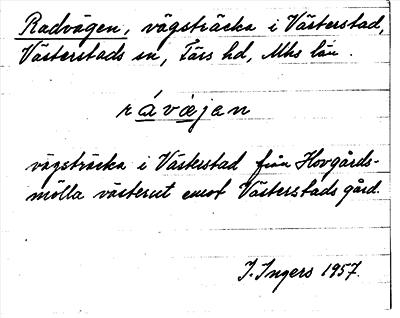 Radvägen, vägsträcka i Västerstad,
Västerstads sn, Färs hd, Mhs län.
rávæjan
vägsträcka i Västerstad från Hovgårds-
mölla västerut emot Västerstads gård.
I. Ingers 1957.